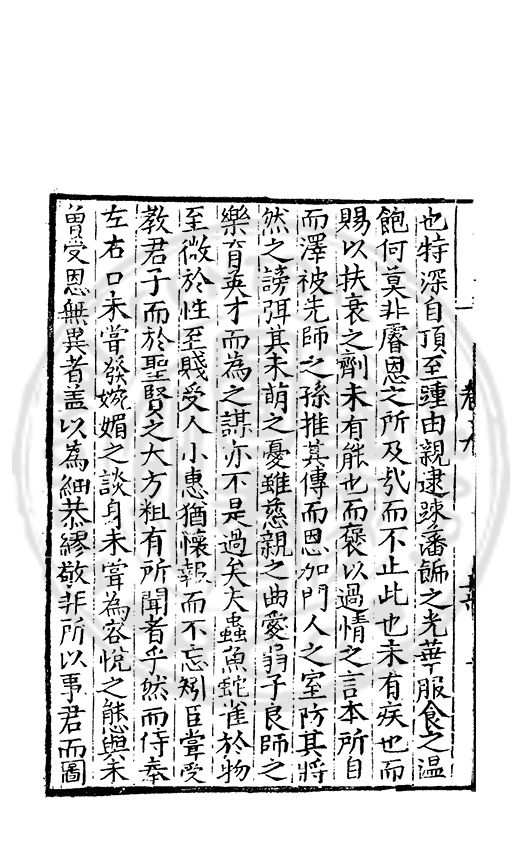 也特深自頂至踵由親逮踈藩餙之光華服食之温
飽何莫非睿恩之所及㢤而不止此也未有疾也而
賜以扶衰之劑未有能也而褒以過情之言本所自
而澤被先師之孫推其傳而恩加門人之室防其將
然之謗弭其未萌之憂雖慈親之曲愛弱子良師之
樂育英才而為之謀亦不是過矣夫蟲魚蛇雀於物
至微於性至賤受人小惠猶懷報而不忘矧臣嘗受
教君子而於聖賢之大方粗有所聞者乎然而侍奉
左右口未嘗發婉媚之談身未嘗為容悅之態與未
曽受恩無異者盖以為細恭繆敬非所以事君而圖